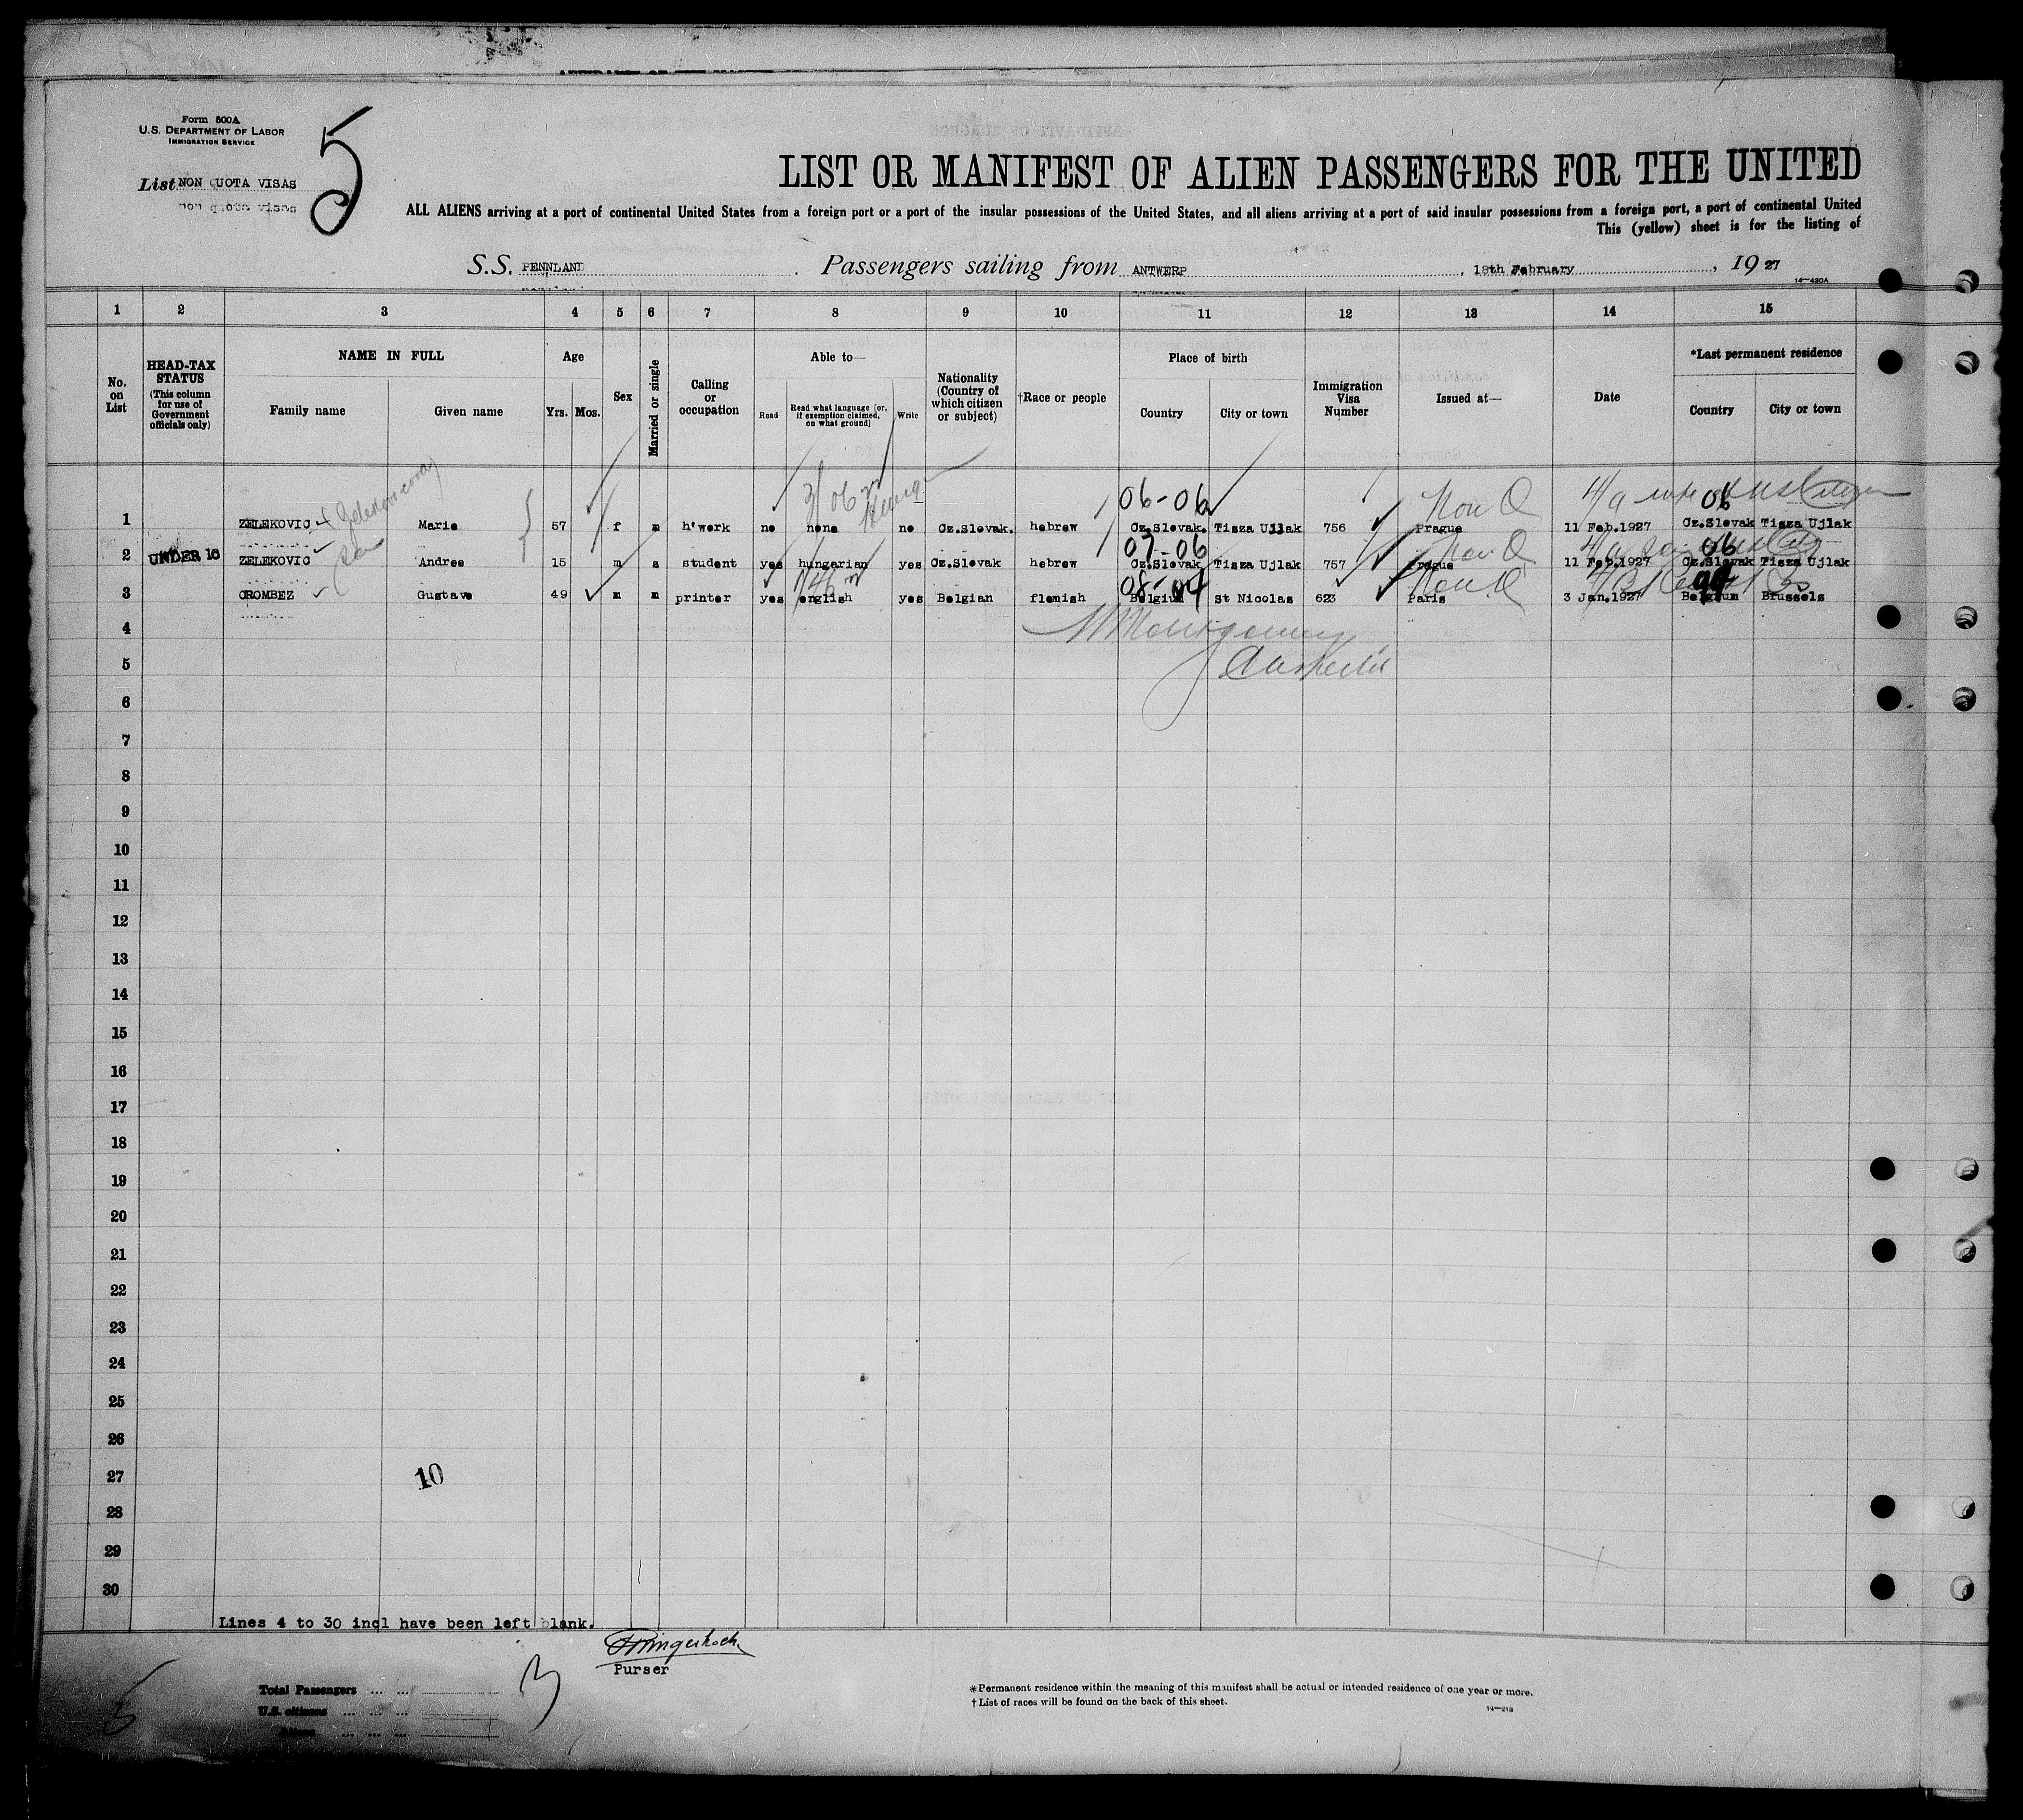 Form 500A
U.S. DEPARTMENT OF LABOR
IMMIGRATION SERVICE
5
List NON QUOTA VISAS
non quota visas
LIST OR MANIFEST OF ALIEN PASSENGERS FOR THE UNITED
ALL ALIENS arriving at a port of continental United States from a foreign port or a port of the insular possessions of the United States, and all aliens arriving at a port of said insular possessions from a foreign port, a port of continental United
This (yellow) sheet is for the listing of
S.S. PENNLAND Passengers sailing from ANTWERP, 18th February, 1927
14-430A
1 2 3 4 5 6 7 8 9 10 11 12 13 14 15
No. on List
HEAD-TAX STATUS (This column for use of Government officials only)
NAME IN FULL
Family name Given name
Age
Yrs. Mos.
Sex
Married or single
Calling or occupation
Able to—
Read Read what language [or, if exemption claimed, on what ground] Write
Nationality (Country of which citizen or subject)
†Race or people
Place of birth
Country City or town
Immigration Visa Number
Issued at—
Date
*Last permanent residence
Country City or town
06-06 Non Q 06
1 ZELEKOVIC Marie 57 f m h'work no none no Cz.Slovak. hebrew Cz.Slovak. Tisza Ujlak 756 Prague 11 Feb.1927 Cz.Slovak Tisza Ujlak
07-06 Non Q 06
2 UNDER 16 ZELEKOVIC Andree 15 m s student yes hungarian yes Cz.Slovak hebrew Cz.Slovak Tisza Ujlak 757 Prague 11 Feb.1927 Cz.Slovak Tisza Ujlak
08-04 Non Q
3 CROMBEZ Gustave 49 m m printer yes english yes Belgian flemish Belgium St Nicolas 623 Paris 3 Jan.1927 Belgium Brussels
4
5
6
7
8
9
10
11
12
13
14
15
16
17
18
19
20
21
22
23
24
25
26
27 10
28
29
30
Lines 4 to 30 incl have been left blank.
Purser
Total Passengers ... ...
U.S. citizens ... ... ...
Aliens ... ... ...
3
5
*Permanent residence within the meaning of this manifest shall be actual or intended residence of one year or more.
†List of races will be found on the back of this sheet.
14-213